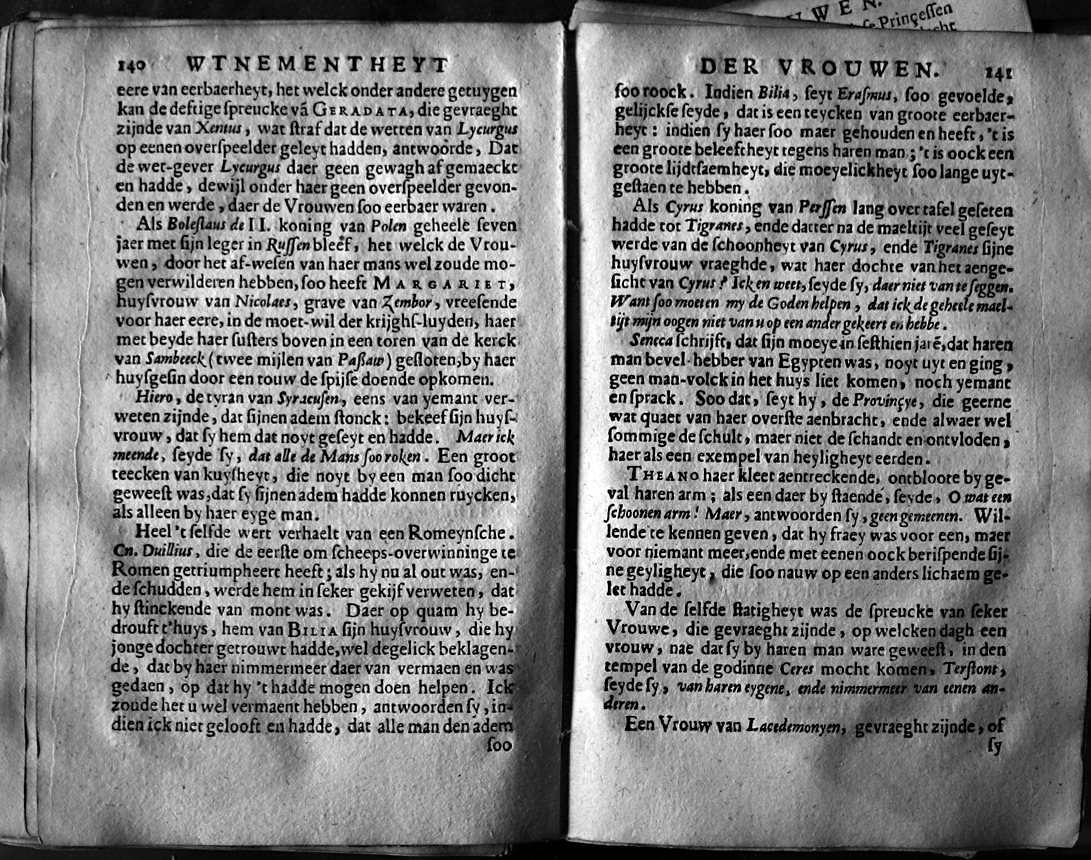 140 WTNEMENTHEYT
eere van eerbaerheyt, het welck onder andere getuygen
kan de deftige ſpreucke vã GERADATA, die gevraeght
zijnde van Xenius, wat ſtraf dat de wetten van Lycurgus
op eenen overſpeelder geleyt hadden, antwoorde, Dat
de wet-gever Lycurgus daer geen gewagh af gemaeckt
en hadde, dewijl onder haer geen overſpeelder gevon-
den en werde, daer de Vrouwen ſoo eerbaer waren.
Als Boleſlaus de II. koning van Polen geheele ſeven
jaer met ſijn leger in Ruſſen bleef, het welck de Vrou-
wen, door het af-weſen van haer mans wel zoude mo-
gen verwilderen hebben, ſoo heeft MARGARIET,
huyſvrouw van Nicolaes, grave van Zembor, vreeſende
voor haer eere, in de moet-wil der krijghſ-luyden, haer
met beyde haer ſuſters boven in een toren van de kerck
van Sambeeck (twee mijlen van Paßaw) geſloten, by haer
huyſgeſin door een touw de ſpijſe doende opkomen.
Hiero, de tyran van Syracuſen, eens van yemant ver-
weten zijnde, dat ſijnen adem ſtonck: bekeef ſijn huyſ-
vrouw, dat ſy hem dat noyt geſeyt en hadde. Maer ick
meende, ſeyde ſy, dat alle de Mans ſoo roken. Een groot
teecken van kuyſheyt, die noyt by een man ſoo dicht
geweeſt was, dat ſy ſijnen adem hadde konnen ruycken,
als alleen by haer eyge man.
Heel 't ſelfde wert verhaelt van een Romeynſche.
Cn. Duillius, die de eerſte om ſcheeps-overwinninge te
Romen getriumpheert heeft; als hy nu al out was, en-
de ſchudden, werde hem in ſeker gekijf verweten, dat
hy ſtinckende van mont was. Daer op quam hy be-
drouft t'huys, hem van BILIA ſijn huyſvrouw, die hy
jonge dochter getrouwt hadde, wel degelick beklagen-
de, dat by haer nimmermeer daer van vermaen en was
gedaen, op dat hy 't hadde mogen doen helpen. Ick
zoude het u wel vermaent hebben, antwoorden ſy, in-
dien ick niet gelooft en hadde, dat alle man den adem
ſoo
DER VROUWEN. 141
ſoo roock. Indien Bilia, ſeyt Eraſmus, ſoo gevoelde,
gelijckſe ſeyde, dat is een teycken van groote eerbaer-
heyt: indien ſy haer ſoo maer gehouden en heeft, 't is
een groote beleeftheyt tegens haren man; 't is oock een
groote lijdtſaemheyt, die moeyelickheyt ſoo lange uyt-
geſtaen te hebben.
Als Cyrus koning van Perſſen lang over tafel geſeten
hadde tot Tigranes, ende datter na de maeltijt veel geſeyt
werde van de ſchoonheyt van Cyrus, ende Tigranes ſijne
huyſvrouw vraeghde, wat haer dochte van het aenge-
ſicht van Cyrus? Ick en weet, ſeyde ſy, daer niet van te ſeggen.
Want ſoo moeten my de Goden helpen, dat ick de geheele mael-
tijt mijn oogen niet van u op een ander gekeert en hebbe.
Seneca ſchrijft, dat ſijn moeye in ſeſthien jarẽ, dat haren
man bevel-hebber van Egypten was, noyt uyt en ging,
geen man-volck in het huys liet komen, noch yemant
en ſprack. Soo dat, ſeyt hy, de Provinçye, die geerne
wat quaet van haer overſte aenbracht, ende alwaer wel
ſommige de ſchult, maer niet de ſchandt en ontvloden,
haer als een exempel van heyligheyt eerden.
THEANO haer kleet aentreckende, ontbloote by ge-
val haren arm; als een daer by ſtaende, ſeyde, O wat een
ſchoonen arm! Maer, antwoorden ſy, geen gemeenen. Wil-
lende te kennen geven, dat hy fraey was voor een, maer
voor niemant meer, ende met eenen oock beriſpende ſij-
ne geyligheyt, die ſoo nauw op een anders lichaem ge-
let hadde.
Van de ſelfde ſtatigheyt was de ſpreucke van ſeker
Vrouwe, die gevraeght zijnde, op welcken dagh een
vrouw, nae dat ſy by haren man ware geweeſt, in den
tempel van de godinne Ceres mocht komen, Terſtont,
ſeyde ſy, van haren eygene, ende nimmermeer van eenen an-
deren.
Een Vrouw van Lacedemonyen, gevraeght zijnde, of
ſy